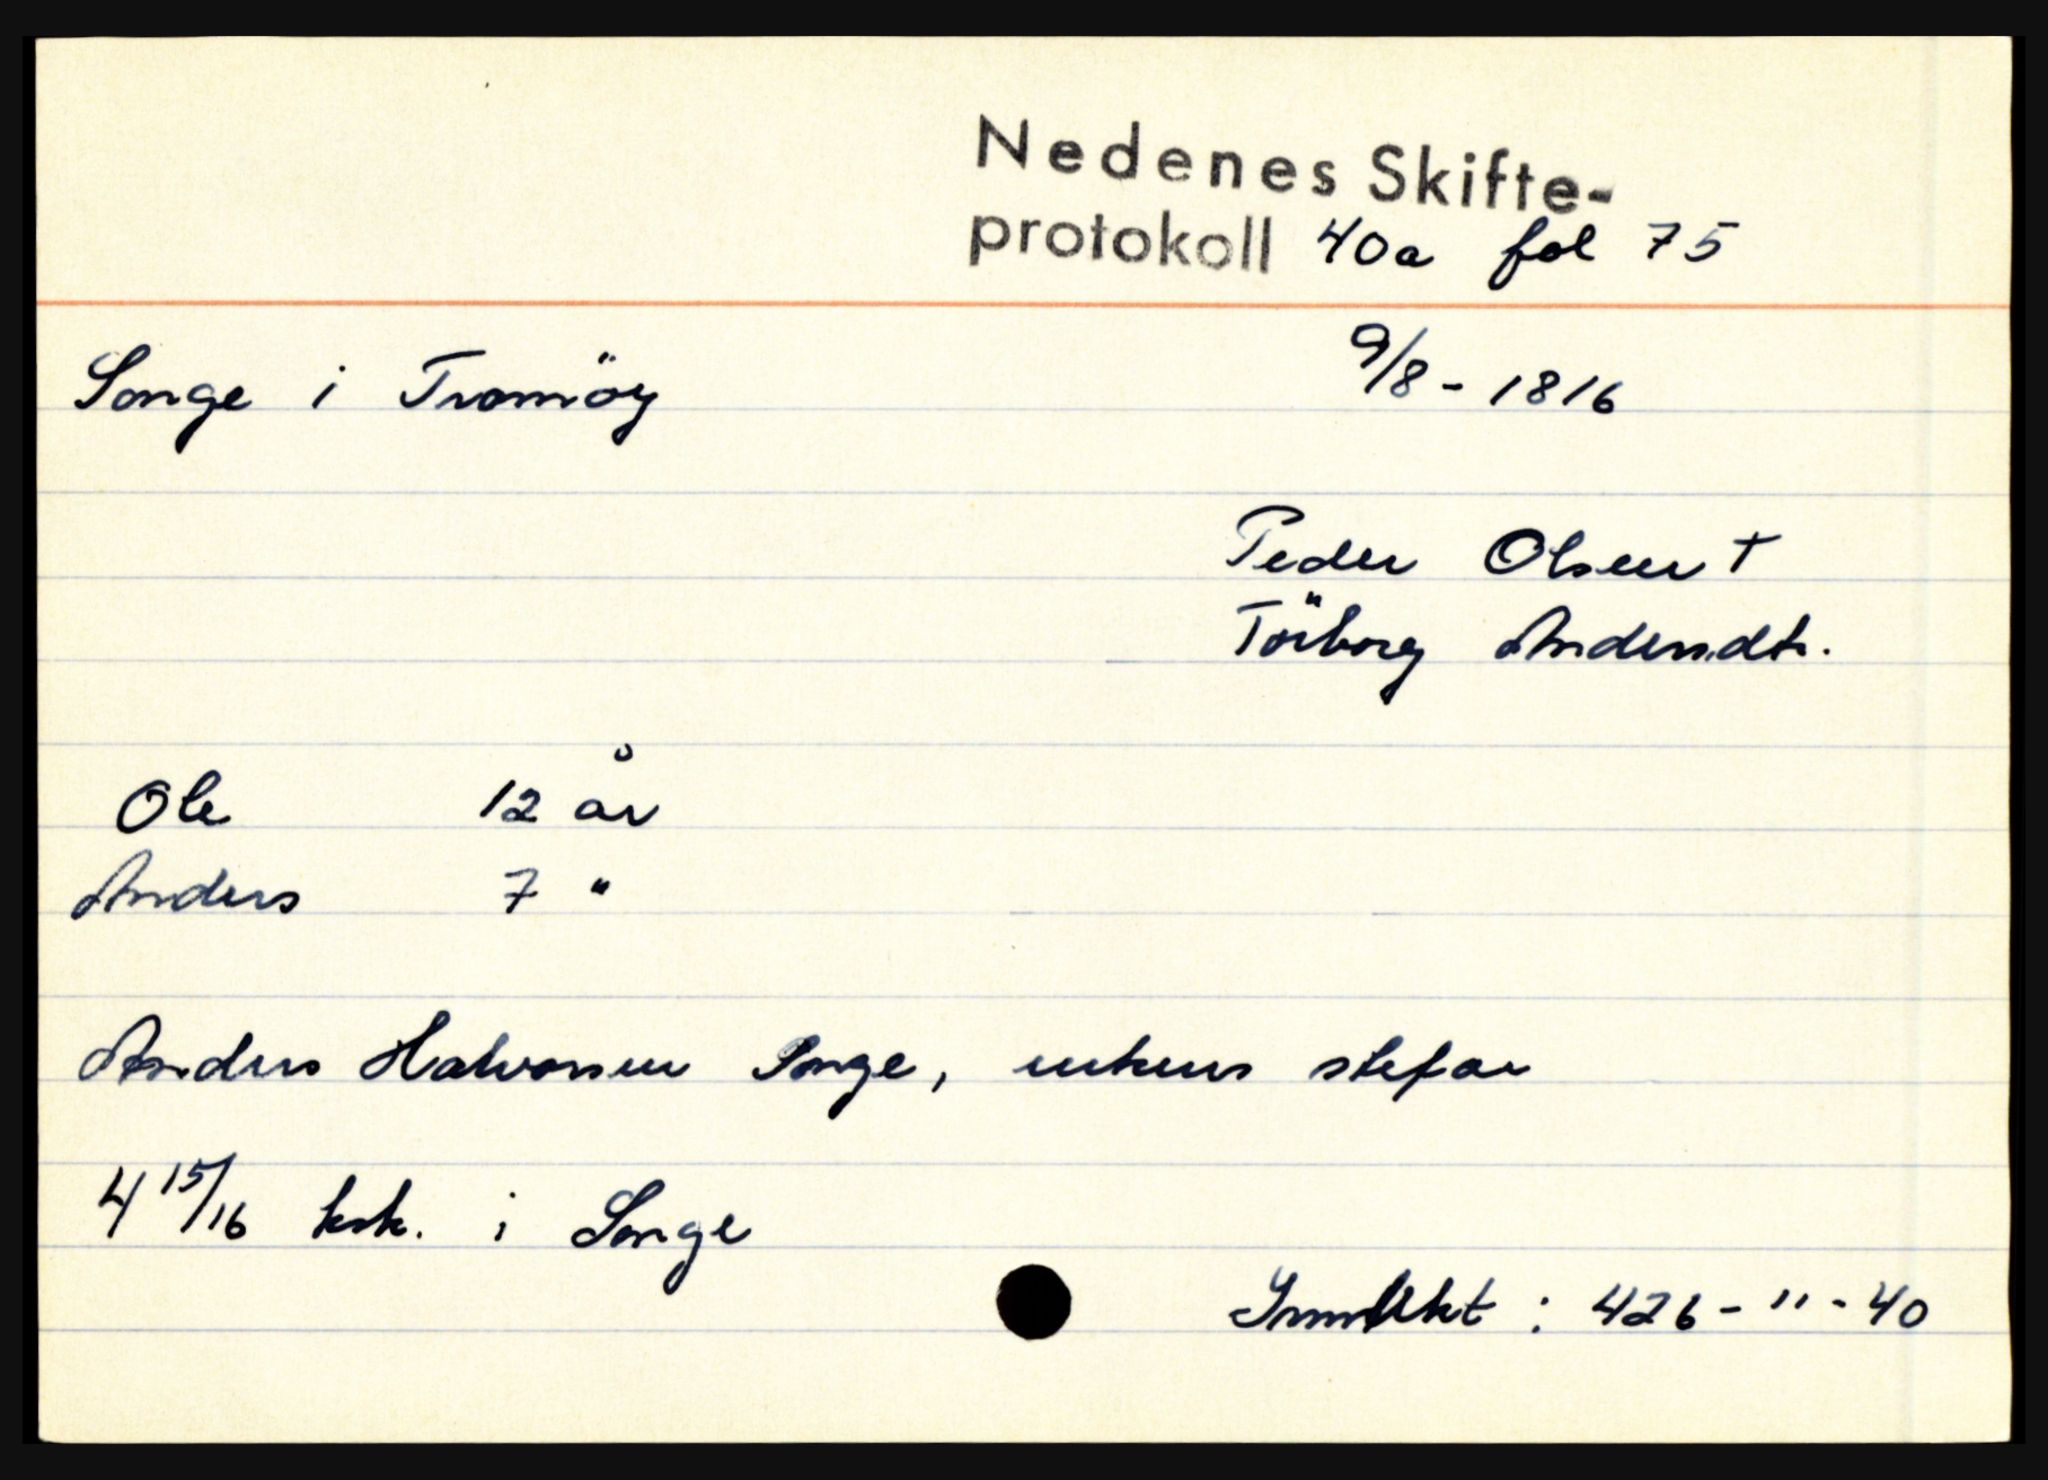 Nedenes Skifte-
protokoll 40a fol 75
Songe i Tromöy 9/8 - 1816
Peder Olsen †
Törborg Andersdt.
Ole 12 år
Anders 7 "
Anders Halvorsen Songe, enkens stefar
4 15/16 ksk. i Songe
Inntekt : 426 - " - 40